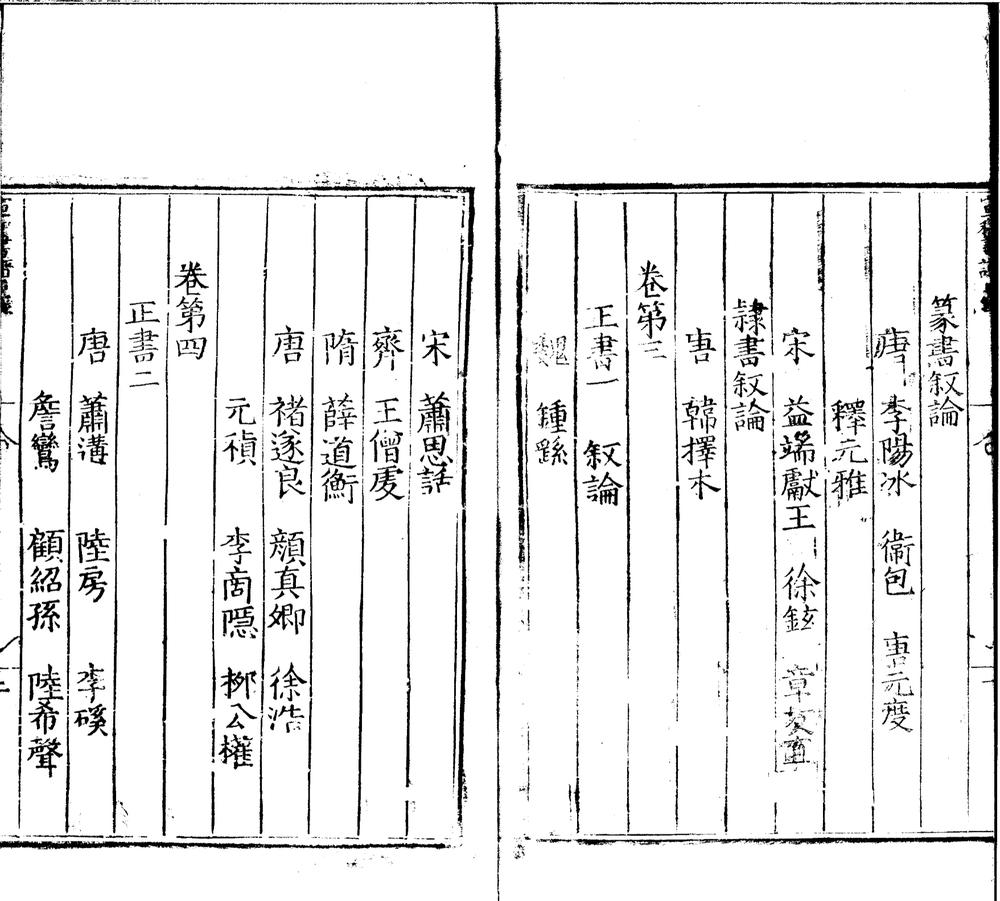 篆書叙論
唐 李陽冰 衞包 唐元度
釋元雅
宋 益端獻王 徐鉉 章友直
隷書叙論
唐 韓擇木
卷第三
正書一 叙論
魏 鍾繇
宋 蕭思話
齊 王僧虔
隋 薛道衡
唐 褚遂良 顏真卿 徐浩
元稹 李商隱 柳公權
卷第四
正書二
唐 蕭溝 陸房 李磎
詹鸞 顧紹孫 陸希聲